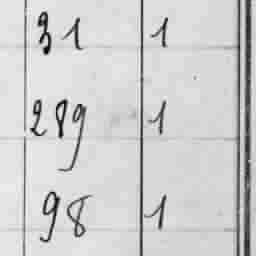 31 1
289 1
98 1